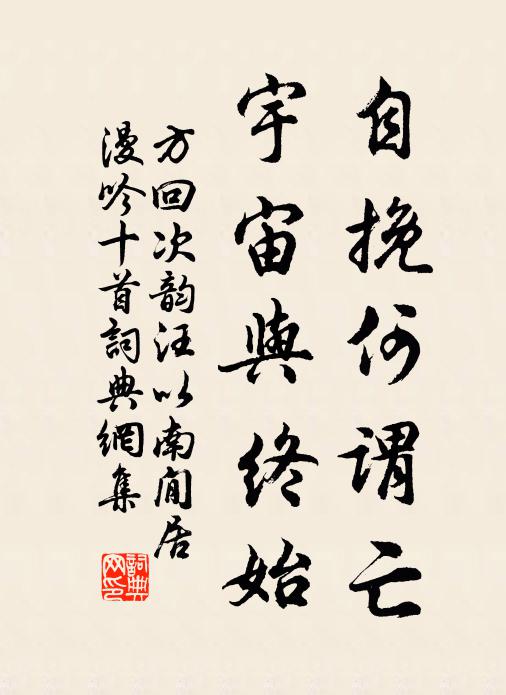 自挽何谓亡
宇宙與终始
方回次韵汪以南閒居
漫吟十首詞典網集
詞典网印